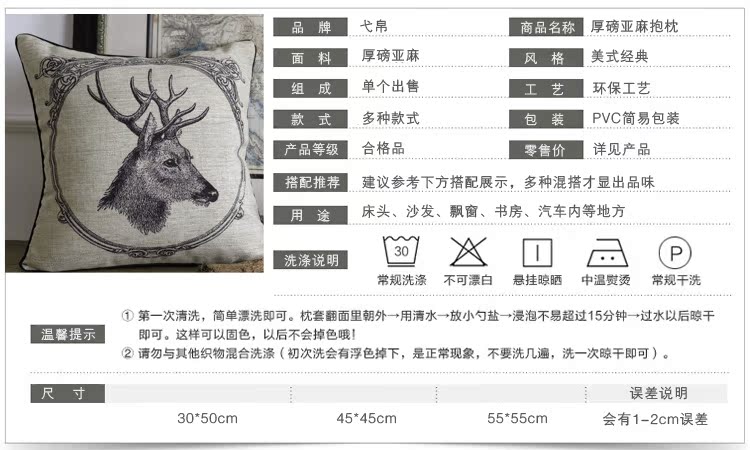 品 牌 弋帛 商品名称 厚磅亚麻抱枕
面 料 厚磅亚麻 风 格 美式经典
组 成 单个出售 工 艺 环保工艺
款 式 多种款式 包 装 PVC简易包装
产品等级 合格品 零售价 详见产品
搭配推荐 建议参考下方搭配展示，多种混搭才显出品味
用 途 床头、沙发、飘窗、书房、汽车内等地方
洗涤说明 30 P
常规洗涤 不可漂白 悬挂晾晒 中温熨烫 常规干洗
温馨提示
① 第一次清洗，简单漂洗即可。枕套翻面里朝外→用清水→放小勺盐→浸泡不易超过15分钟→过水以后晾干
即可。这样可以固色，以后不会掉色哦！
② 请勿与其他织物混合洗涤（初次洗会有浮色掉下，是正常现象，不要洗几遍，洗一次晾干即可）。
尺 寸 误差说明
30*50cm 45*45cm 55*55cm 会有1-2cm误差